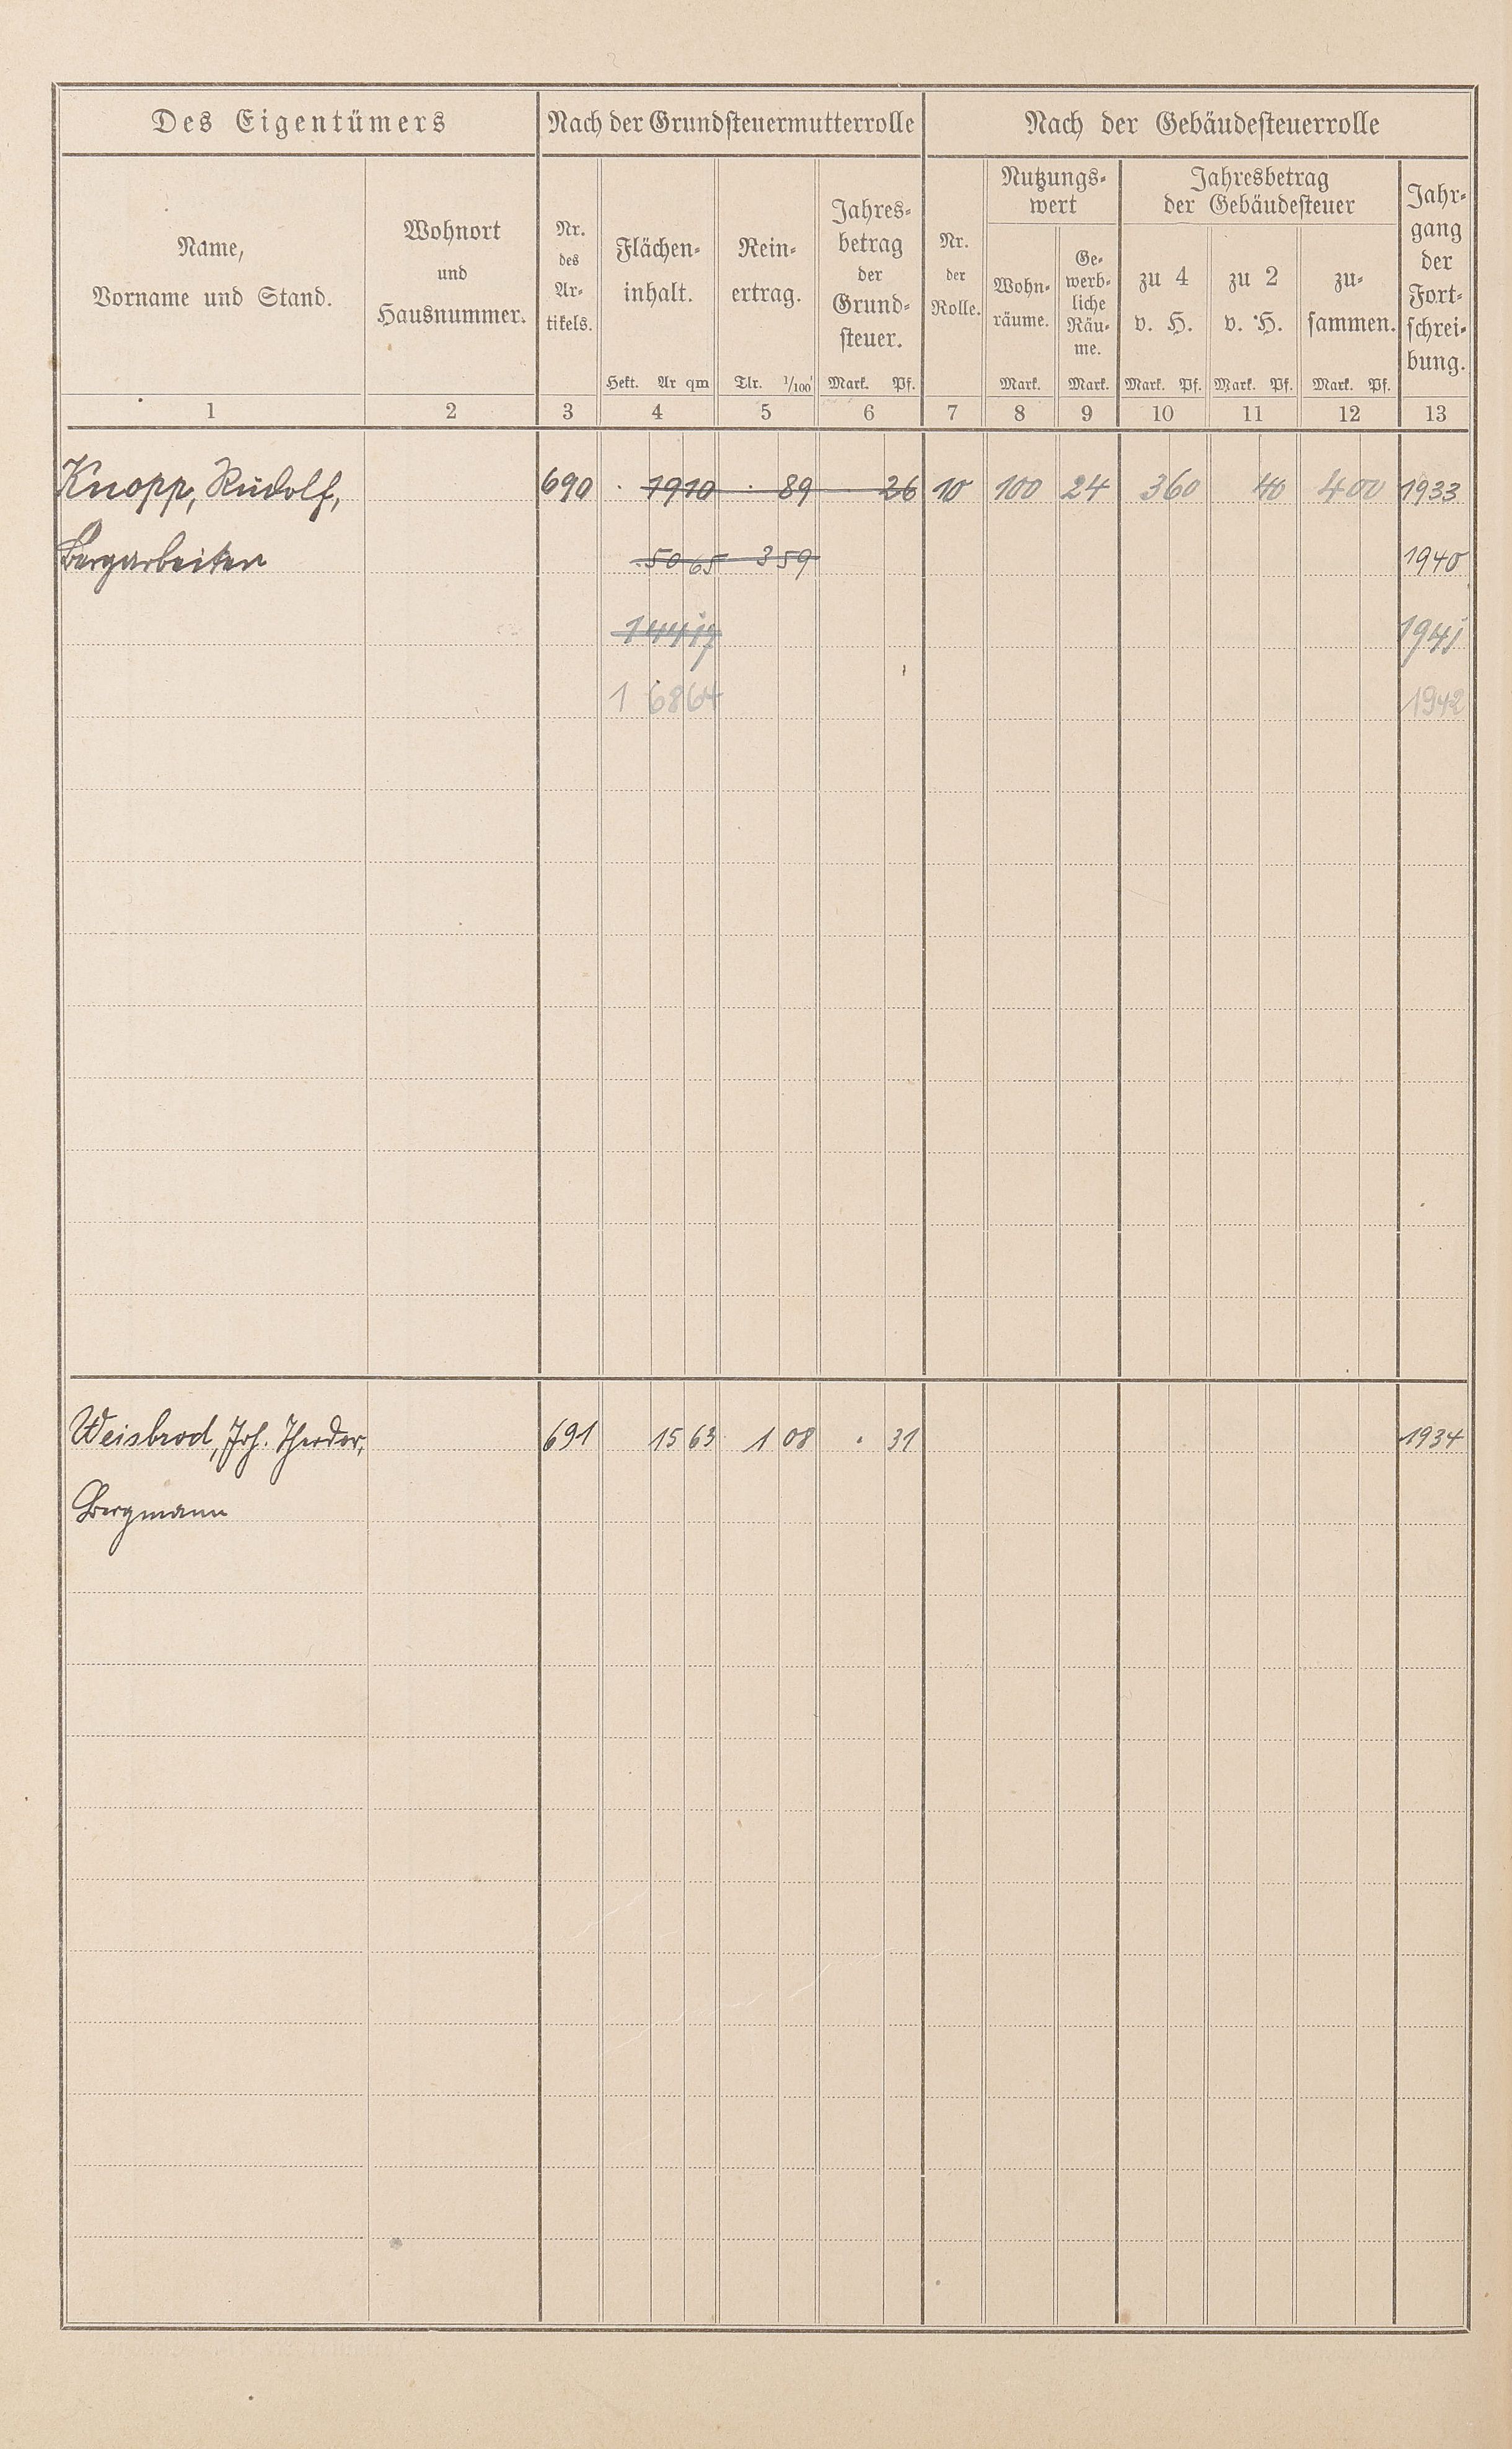 Des Eigentümers Nach der Grundsteuermutterrolle Nach der Gebäudesteuerrolle
Name,
Vorname und Stand.
Wohnort
und
Hausnummer.
Nr.
des
Ar-
tikels.
Flächen-
inhalt.
Hekt. Ar qm
Rein-
ertrag.
Tlr. 1/100
Jahres-
betrag
der
Grund-
steuer.
Mark. Pf.
Nr.
der
Rolle.
Nutzungs-
wert
Wohn-
räume.
Mark.
Ge-
werb-
liche
Räu-
me.
Mark.
Jahresbetrag
der Gebäudesteuer
zu 4
v. H.
Mark. Pf.
zu 2
v. H.
Mark. Pf.
zu-
sammen.
Mark. Pf.
Jahr-
gang
der
Fort-
schrei-
bung.
1 2 3 4 5 6 7 8 9 10 11 12 13
Knopp, Rudolf, 690 . 19 10 . 89 36 10 100 24 3 60 40 4 00 1933
Bergarbeiter . 50 65 3 59 1940
1 44 17 1941
1 68 64 1942
Weisbrod, Joh. Theodor, 691 15 63 1 08 . 31 1934
Bergmann